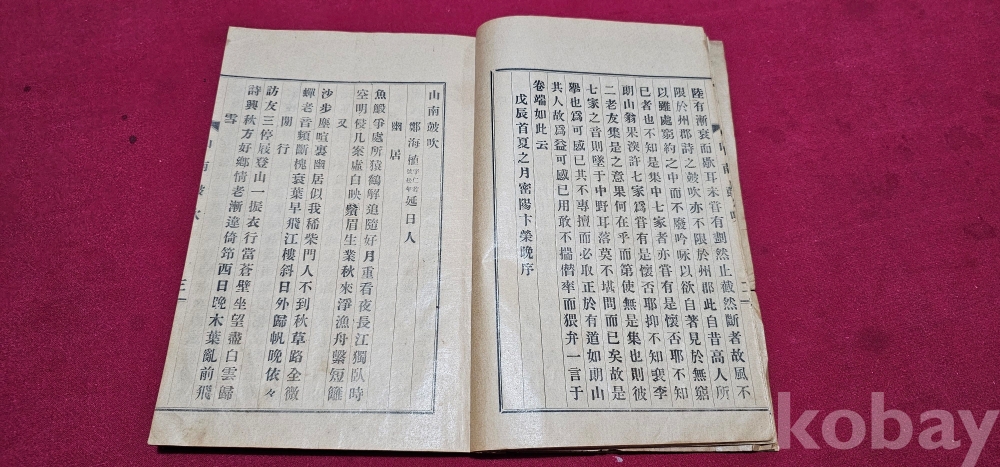 陸有漸衰而歇耳未甞有劃然止截然斷者故風不
限於州郡詩之皷吹亦不限於州郡此自昔高人所
以雖處窮約之中而不廢吟咏以欲自著見於無窮
已者也不知是集中七家者亦甞有是懷否耶不知
朗山翁果湥許七家爲甞有是懷否耶抑不知裵李
二老友集是之意果何在乎而第使無是集也則彼
七家之音則墜于中野耳落莫不堪問而已矣故是
擧也爲可感已其不專擅而必取正於有道如朗山
其人故爲益可感已用敢不揣僭率而猥弁一言于
卷端如此云
戊辰首夏之月密陽卞榮晚序
二
山南皷吹
鄭海植 延日人
幽居
魚鰕爭處所猿鶴解追隨好月重看夜長江獨臥時
空明侵几案虛白映鬢眉生業秋來淨漁舟繫短籬
又
沙步塵喧裏幽居似我稀柴門人不到秋草路全微
蟬老音頻斷槐衰葉早飛江樓斜日外歸帆晚依々
閒行
訪友三停屐登山一振衣行當蒼壁坐望盡白雲歸
詩興秋方好鄉情老漸違倚筇西日晚木葉亂前飛
雪
三
kobay